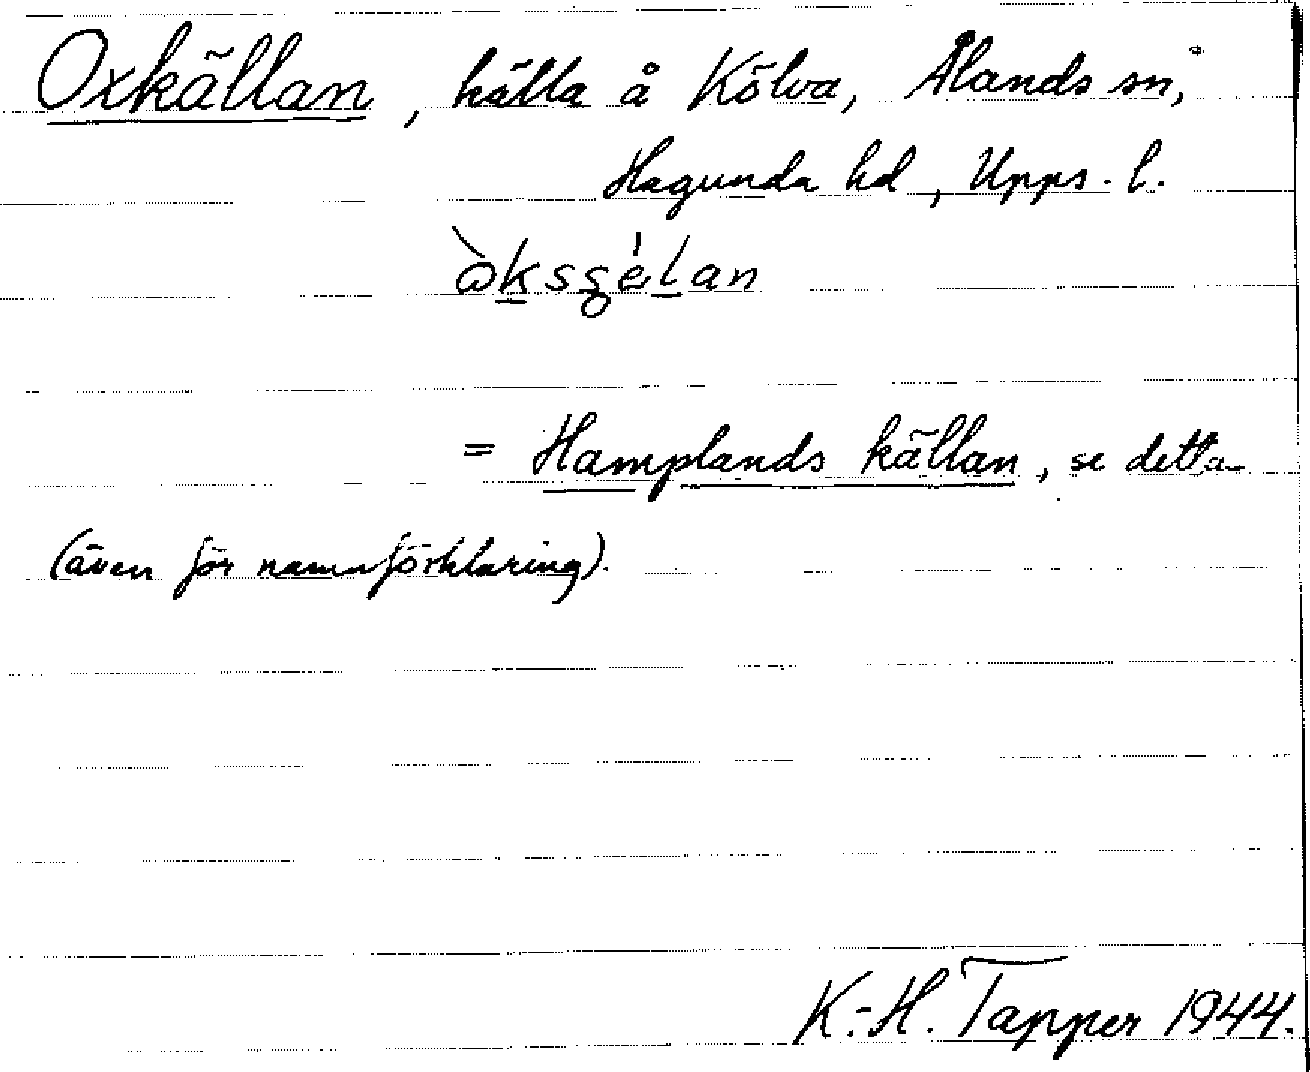 Oxkällan, källa å Kölva, Ålands sn,
Hagunda hd, Upps. l.
= Hamplands källan, se detta
(även för namnförklaring).
K.-H. Tapper 1944.